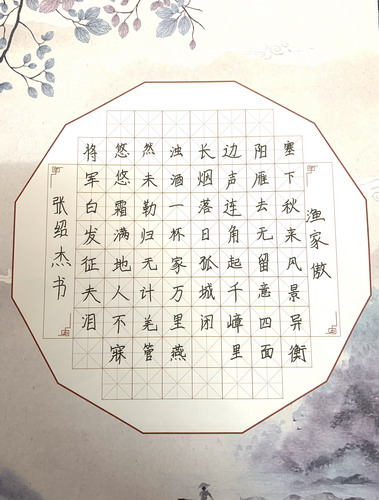 渔家傲
塞下秋来风景异衡
阳雁去无留意四面
边声连角起千嶂里
长烟落日孤城闭
浊酒一杯家万里燕
然未勒归无计羌管
悠悠霜满地人不寐
将军白发征夫泪
张绍杰书